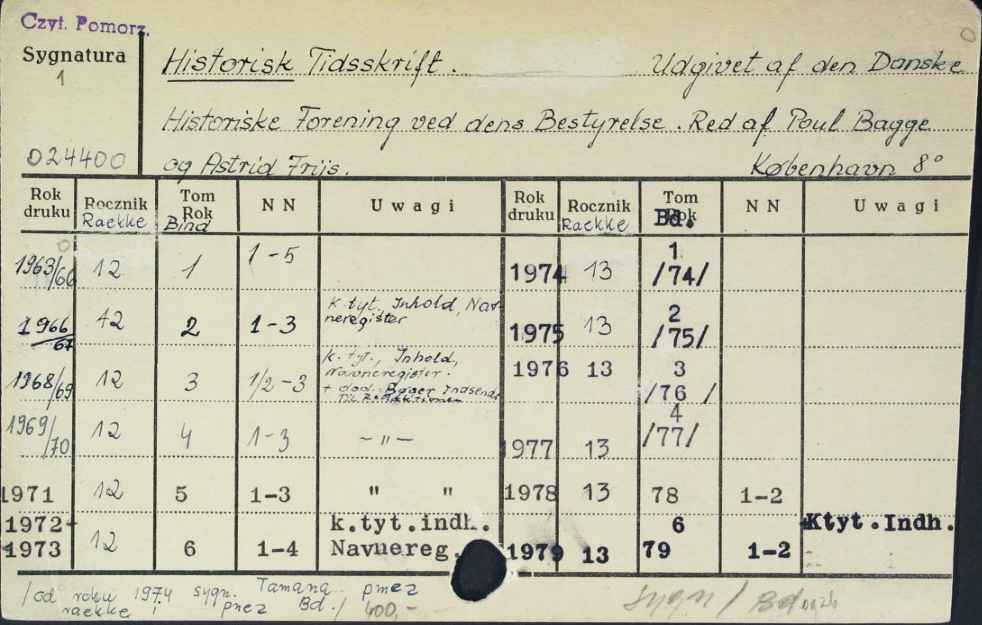 Czyt. Pomorz.
Sygnatura
1
024400
Historisk Tidsskrift. Udgivet af den Danske
Historiske Forening ved dens Bestyrelse. Red af Poul Bagge
og Astrid Friis. København 8°
Rok druku Rocznik Raekke Tom Rok Bind NN Uwagi Rok druku Rocznik Raekke Tom Rok Bd. NN Uwagi
1963/66 12 1 1-5 1974 13 1 /74/
1966/67 12 2 1-3 k. tyt, Inhold, Navneregister 1975 13 2 /75/
1968/69 12 3 1/2-3 k. tyt., Inhold, Navneregister. + dod. Bøger Indsendt til Redaktionen 1976 13 3 /76/
1969/70 12 4 1-3 -"- 1977 13 4 /77/
1971 12 5 1-3 " " 1978 13 78 1-2
1972-1973 12 6 1-4 k.tyt.indh. Navnereg. 1979 13 6 79 1-2 Ktyt.Indh.
/od roku 1974 sygn. pmez
raekke ! pnez Bd./ 400,-
sygn / Bd